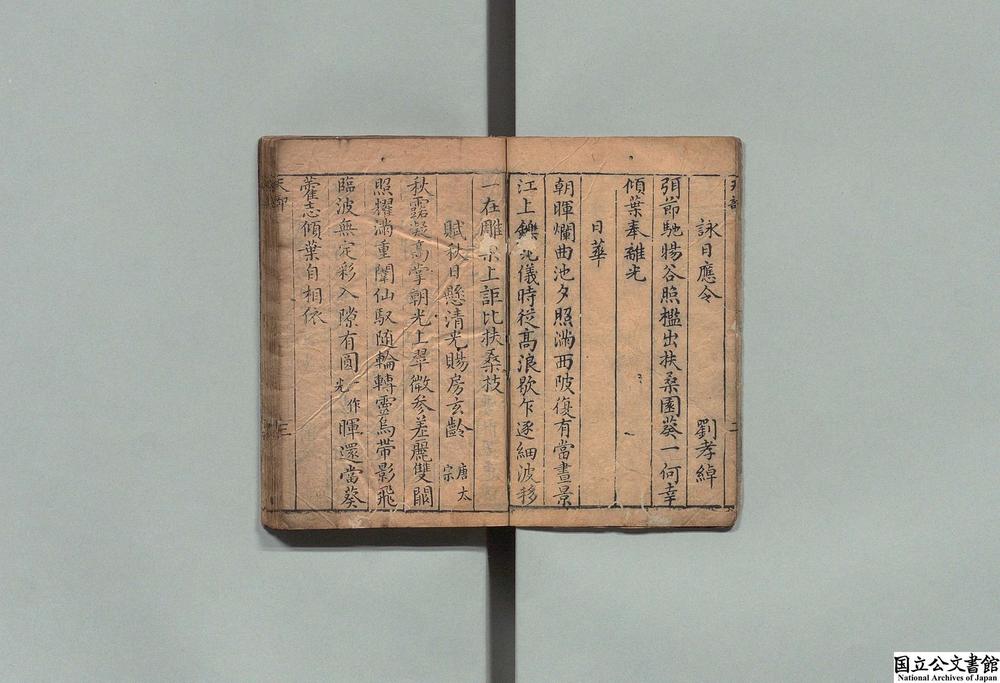 天部
二
詠日應令 劉孝綽
弭節馳暘谷照檻出扶桑園葵一何幸
傾葉奉離光
日華
朝暉爛曲池夕照滿西陂復有當晝景
江上鑠光儀時從高浪歇乍逐細波移
一在雕梁上詎比扶桑枝
賦秋日懸清光賜房玄齡 唐太宗
秋露凝高掌朝光上翠微參差麗雙闕
照耀滿重闈仙馭隨輪轉靈烏帶影飛
臨波無定彩入隙有圓一作光暉還當葵
藿志傾葉自相依
天部
三
国立公文書館
National Archives of Japan